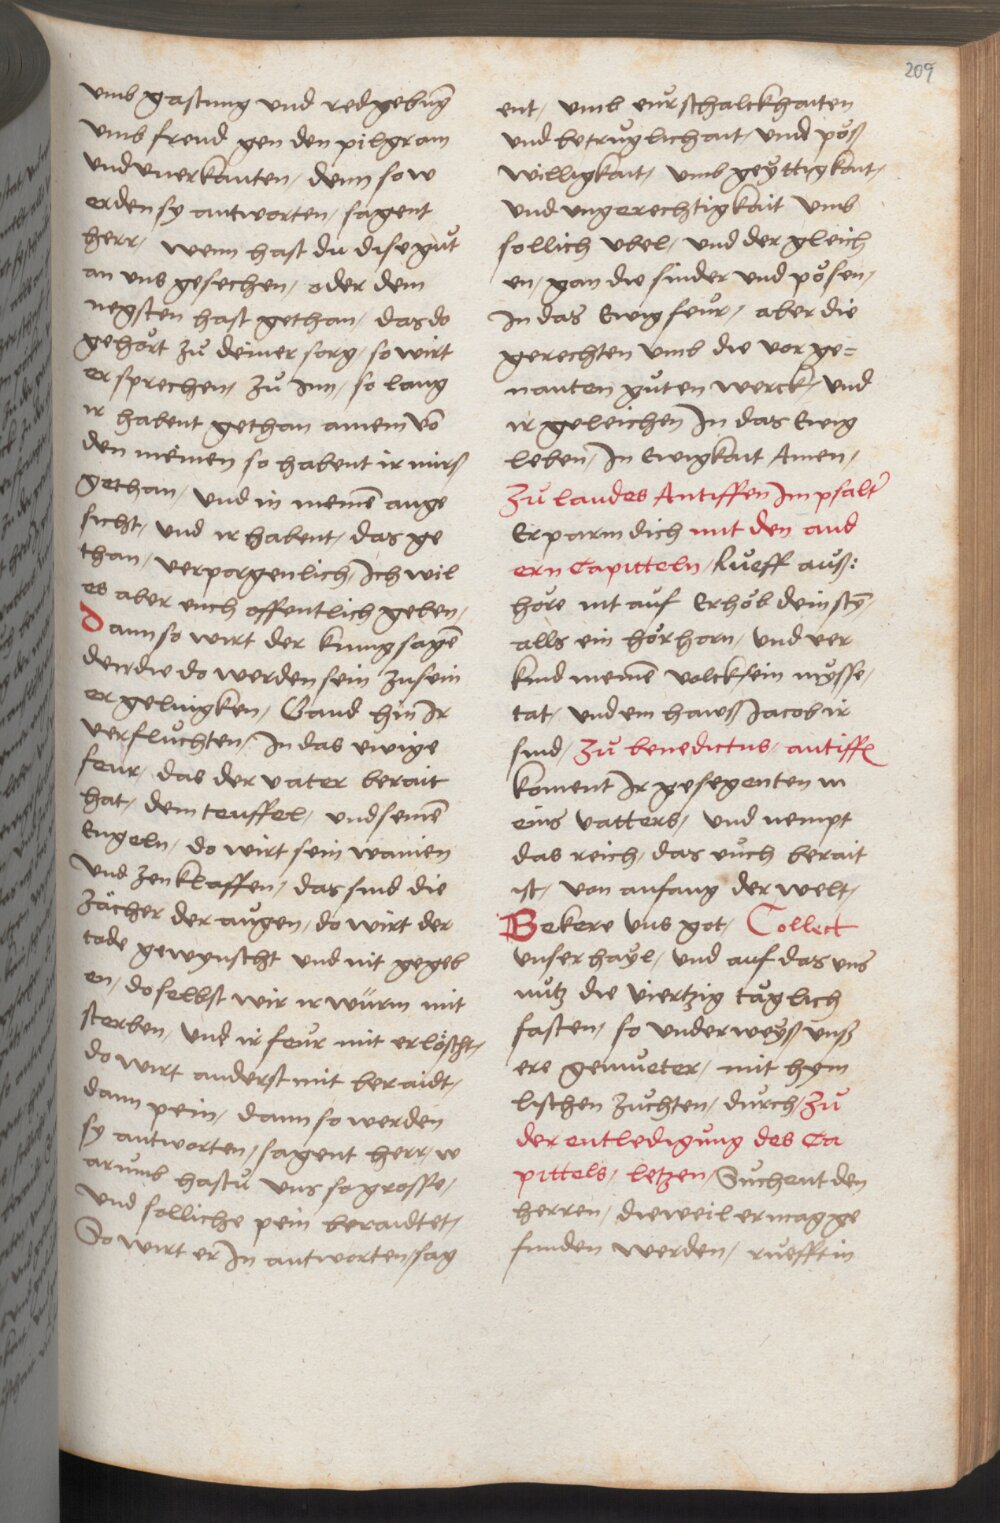 209
vmb gastung vnd redgebung
vmb freud gen den pilgram
vnd vnerkanten, denn so w
erden sy antworten, sagent
herr, wenn hast du dise gut
an vns gesechen, oder dem
negsten hast gethan, das do
gehört zů deiner sorg, so wirt
er sprechen, zů Inn, so lang
ir habent gethan ainem vō
den meinen so habent ir mirß
gethan, vnd in meinē ange
sicht, vnd ir habent, das ge
than, verporgenlich, Ich wil
es aber euch offentlich geben,
Dann so wirt der kunig sagē
den die do werden sein zu sein
er gelingken, Gand hin Ir
verflůchten, In das ewige
feur, das der vater berait
hat, dem teuffel, vnd seinē
Engeln, do wirt sein wainen
vnd zen klaffen, das sind die
zächer der augen, do wirt der
tode gewynscht vnd nit gegeb
en, do selbst wir ir würm nit
sterben, vnd ir feůr nit erlöscht,
do wirt anderst nit beraidt,
dann pein, dann so werden
sy antworten, sagent herr, w
arumb hastů vns so grosse,
vnd solliche pein beraidtet,
So wirt er In antworten, sag
ent, vmb eůr schalckhaiten
vnd betruglichait, vnd pöß
willigkait, vmb geyttigkait,
vnd vngerechtigkait vmb
sollich vbel, vnd der gleich
en, gan die sinder vnd pösen,
In das Ewig feůr, aber die
gerechten vmb die vor ge=
nanten gůten werck, vnd
ir geleichen In das Ewig
leben, In Ewigkait Amen,
Zů laudes Antiffen Im psalter
Erparm dich mit den and
ern Capitteln, Rueff auß:
höre nit auf Erhöb dein stȳ,
alls ein hörhorn, vnd ver
kind meinē volck sein mysse,
tat, vnd em hawß Jacob ir
sind, Zů benedictus, antiffe
koment Ir gesegenten m
eins vatters, vnd nempt
das reich, das eůch berait
ist, von anfang der welt,
Bekere vns got, Collect
vnser hayl, vnd auf das vns
nůtz die viertzig täglich
fasten, so vnderweyß vnß
ere gemueter, mit hym
lischen zůchten, durch, Zů
der entledigung des Ca
pittels, letzen, Sůchent den
herren, die weil er mag ge
funden werden, ruefft in